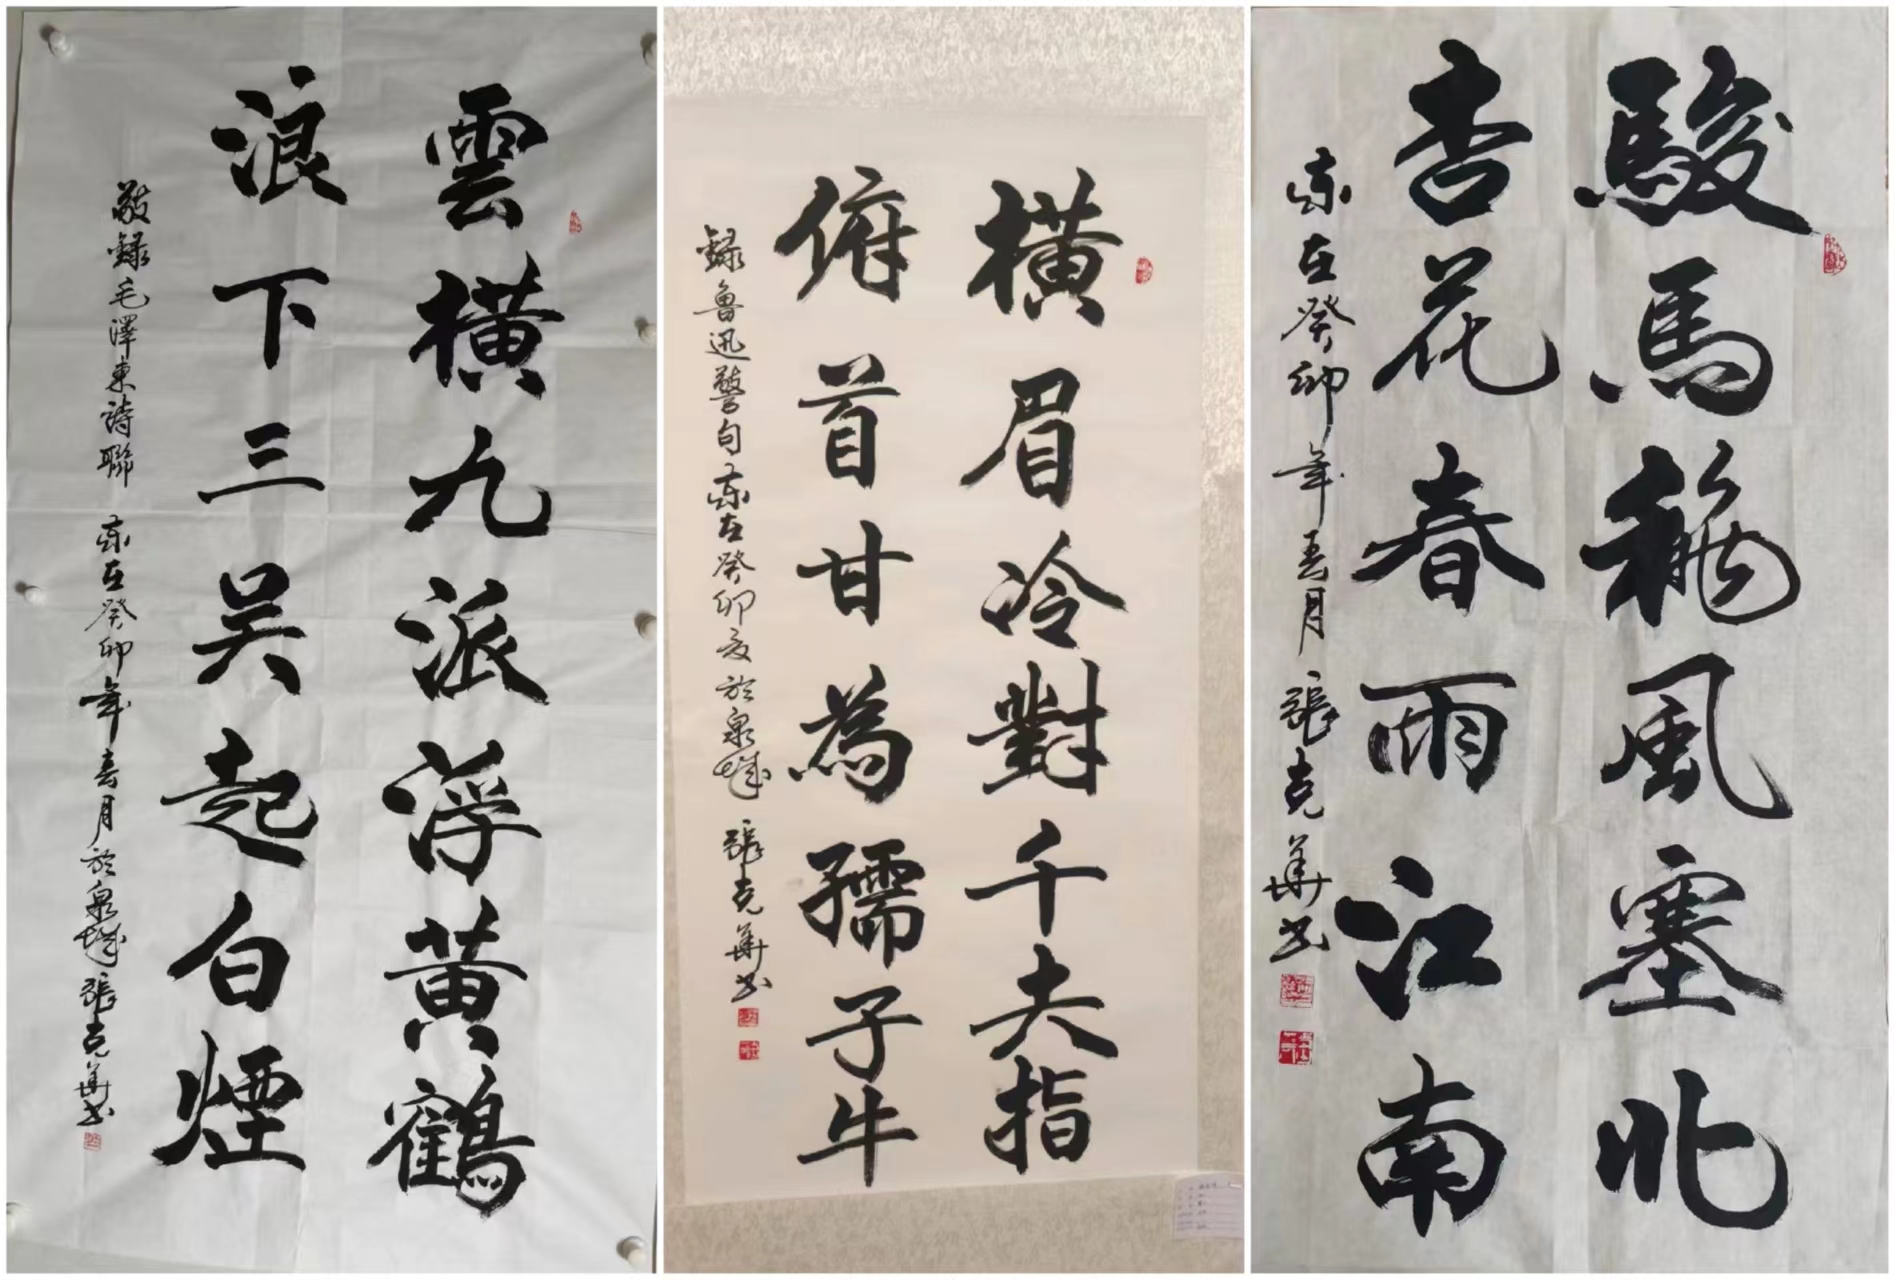 雲橫九派浮黃鶴
浪下三吳起白煙
敬錄毛澤東詩聯 歲在癸卯年春月於泉城 張克華书
橫眉冷對千夫指
俯首甘為孺子牛
錄魯迅警句歲在癸卯夏於泉城 張克華书
駿馬龝風塞北
杏花春雨江南
歲在癸卯年春月 張克華书